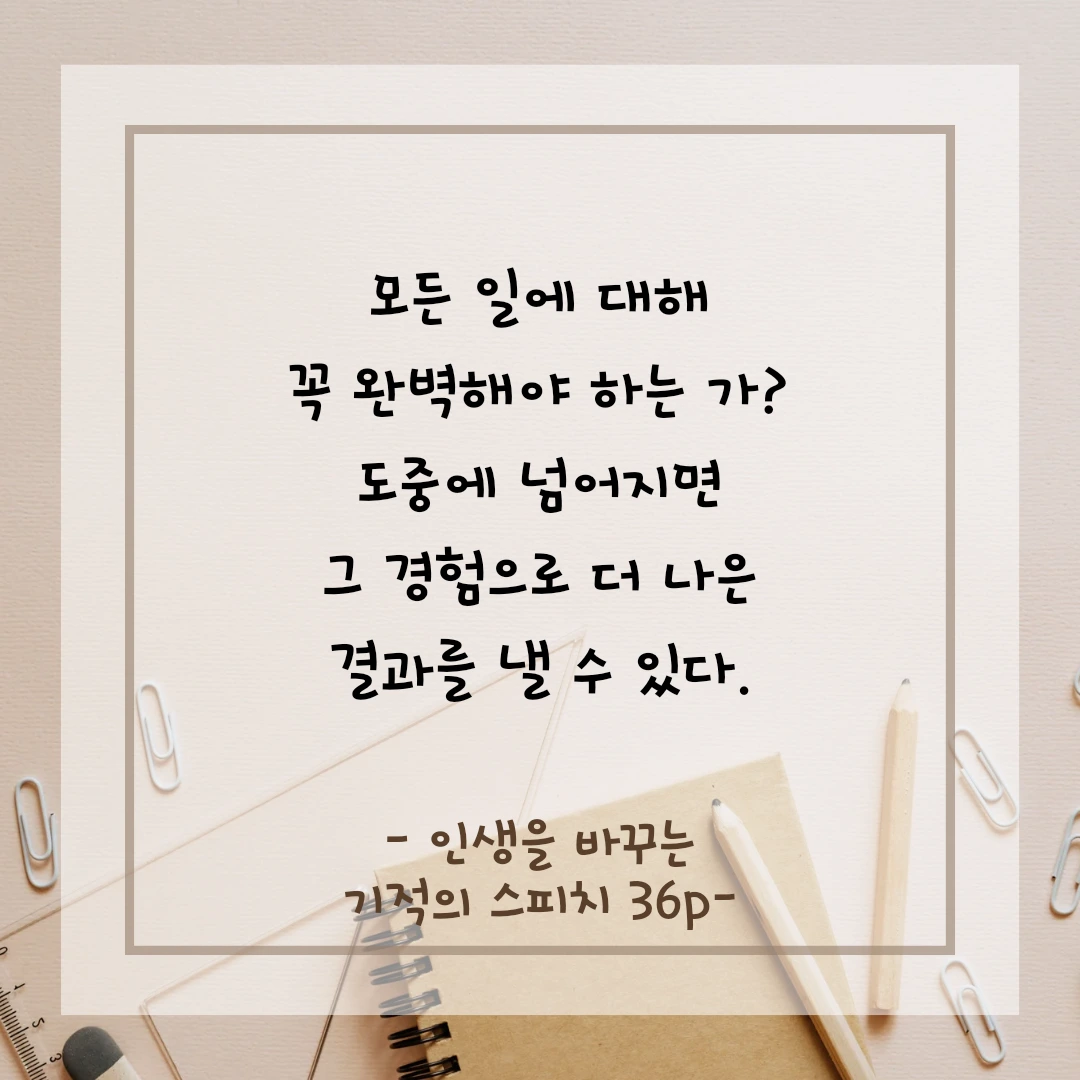 모든 일에 대해
꼭 완벽해야 하는 가?
도중에 넘어지면
그 경험으로 더 나은
결과를 낼 수 있다.
- 인생을 바꾸는
기적의 스피치 36p-